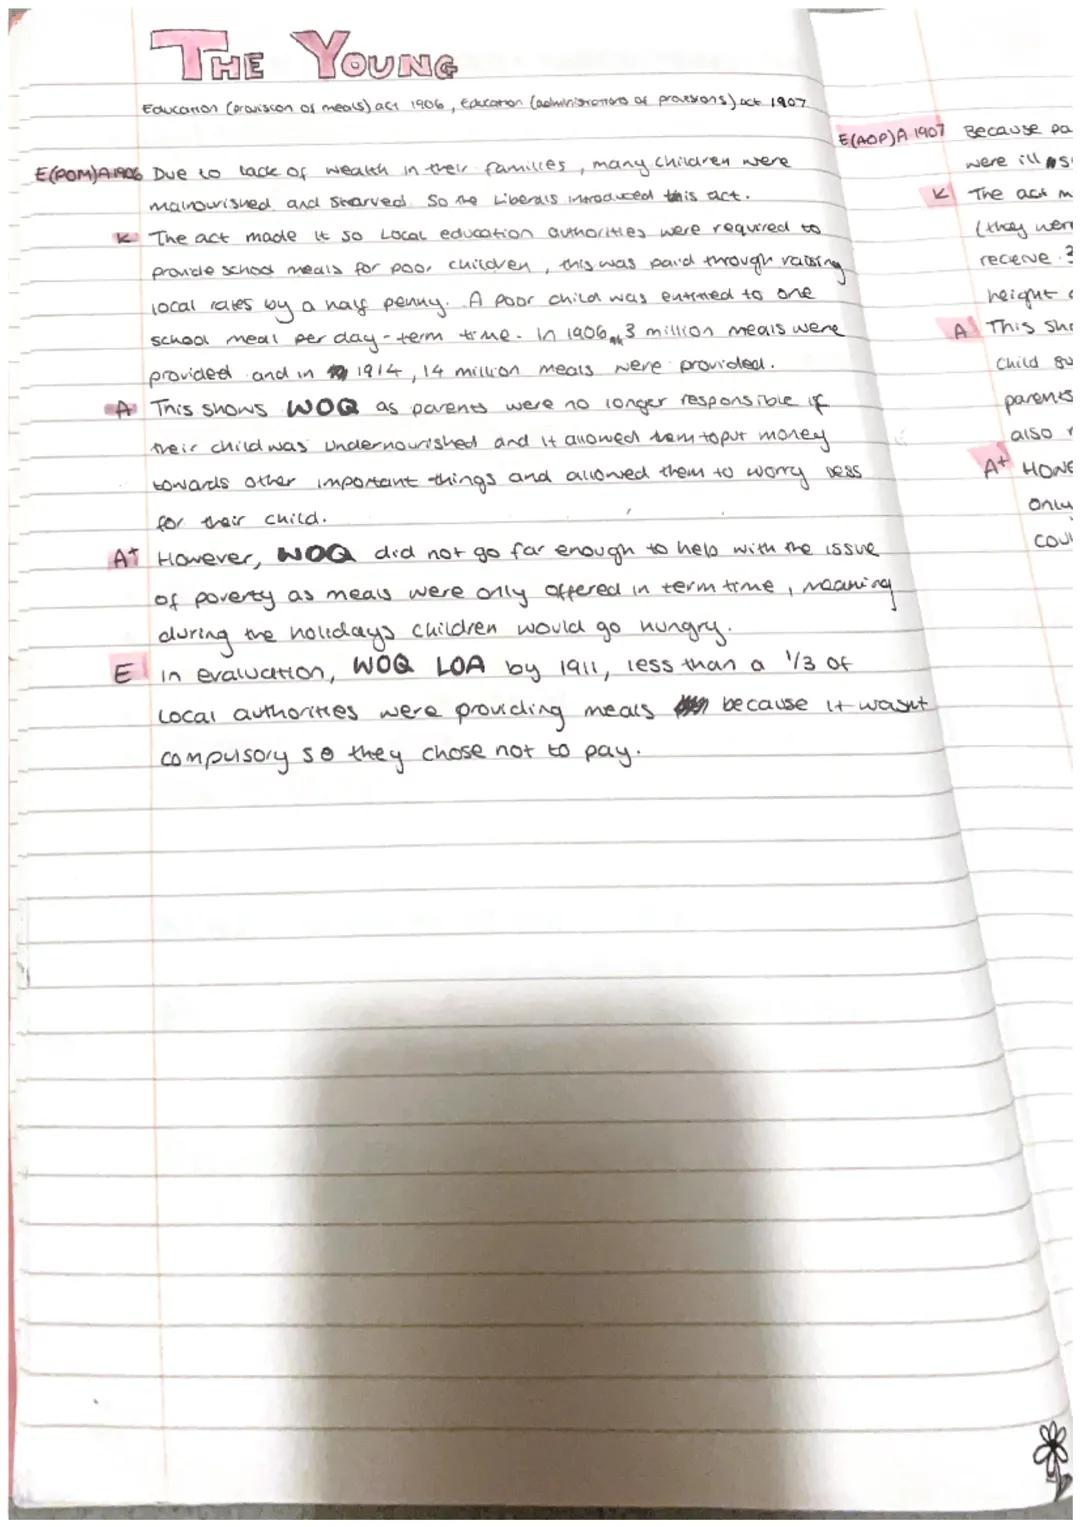 THE YOUNG
Education (provision of meals) act 1906, Education (administrations of provisions) act 1907
E(POM)A 1906 Due to lack of wealth in their families, many children were
malnourished and starved. So the Liberals introduced this act.
K The act made it so Local education authorities were required to
provide school meals for poor children, this was paid through raising
local rates by a half penny. A poor child was entitled to one
school meal per day-term time. In 1906, 3 million meals were
provided and in 1914, 14 million meals were provided.
A This shows WOQ as parents were no longer responsible if
their child was undernourished and it allowed them to put money
towards other important things and allowed them to worry less
for their child.
A+ However, WOQ did not go far enough to help with the issue
of poverty as meals were only offered in term time, meaning
during the holidays children would go hungry.
E In evaluation, WOQ LOA by 1911, less than a 1/3 of
Local authorities were providing meals because it wasnt
compulsory so they chose not to pay.
E(AOP)A 1907 Because pa
were ill
K The act m
(they wer
receive 3
height
A This sh
child
parents
also
A+ HOWE
only
cou